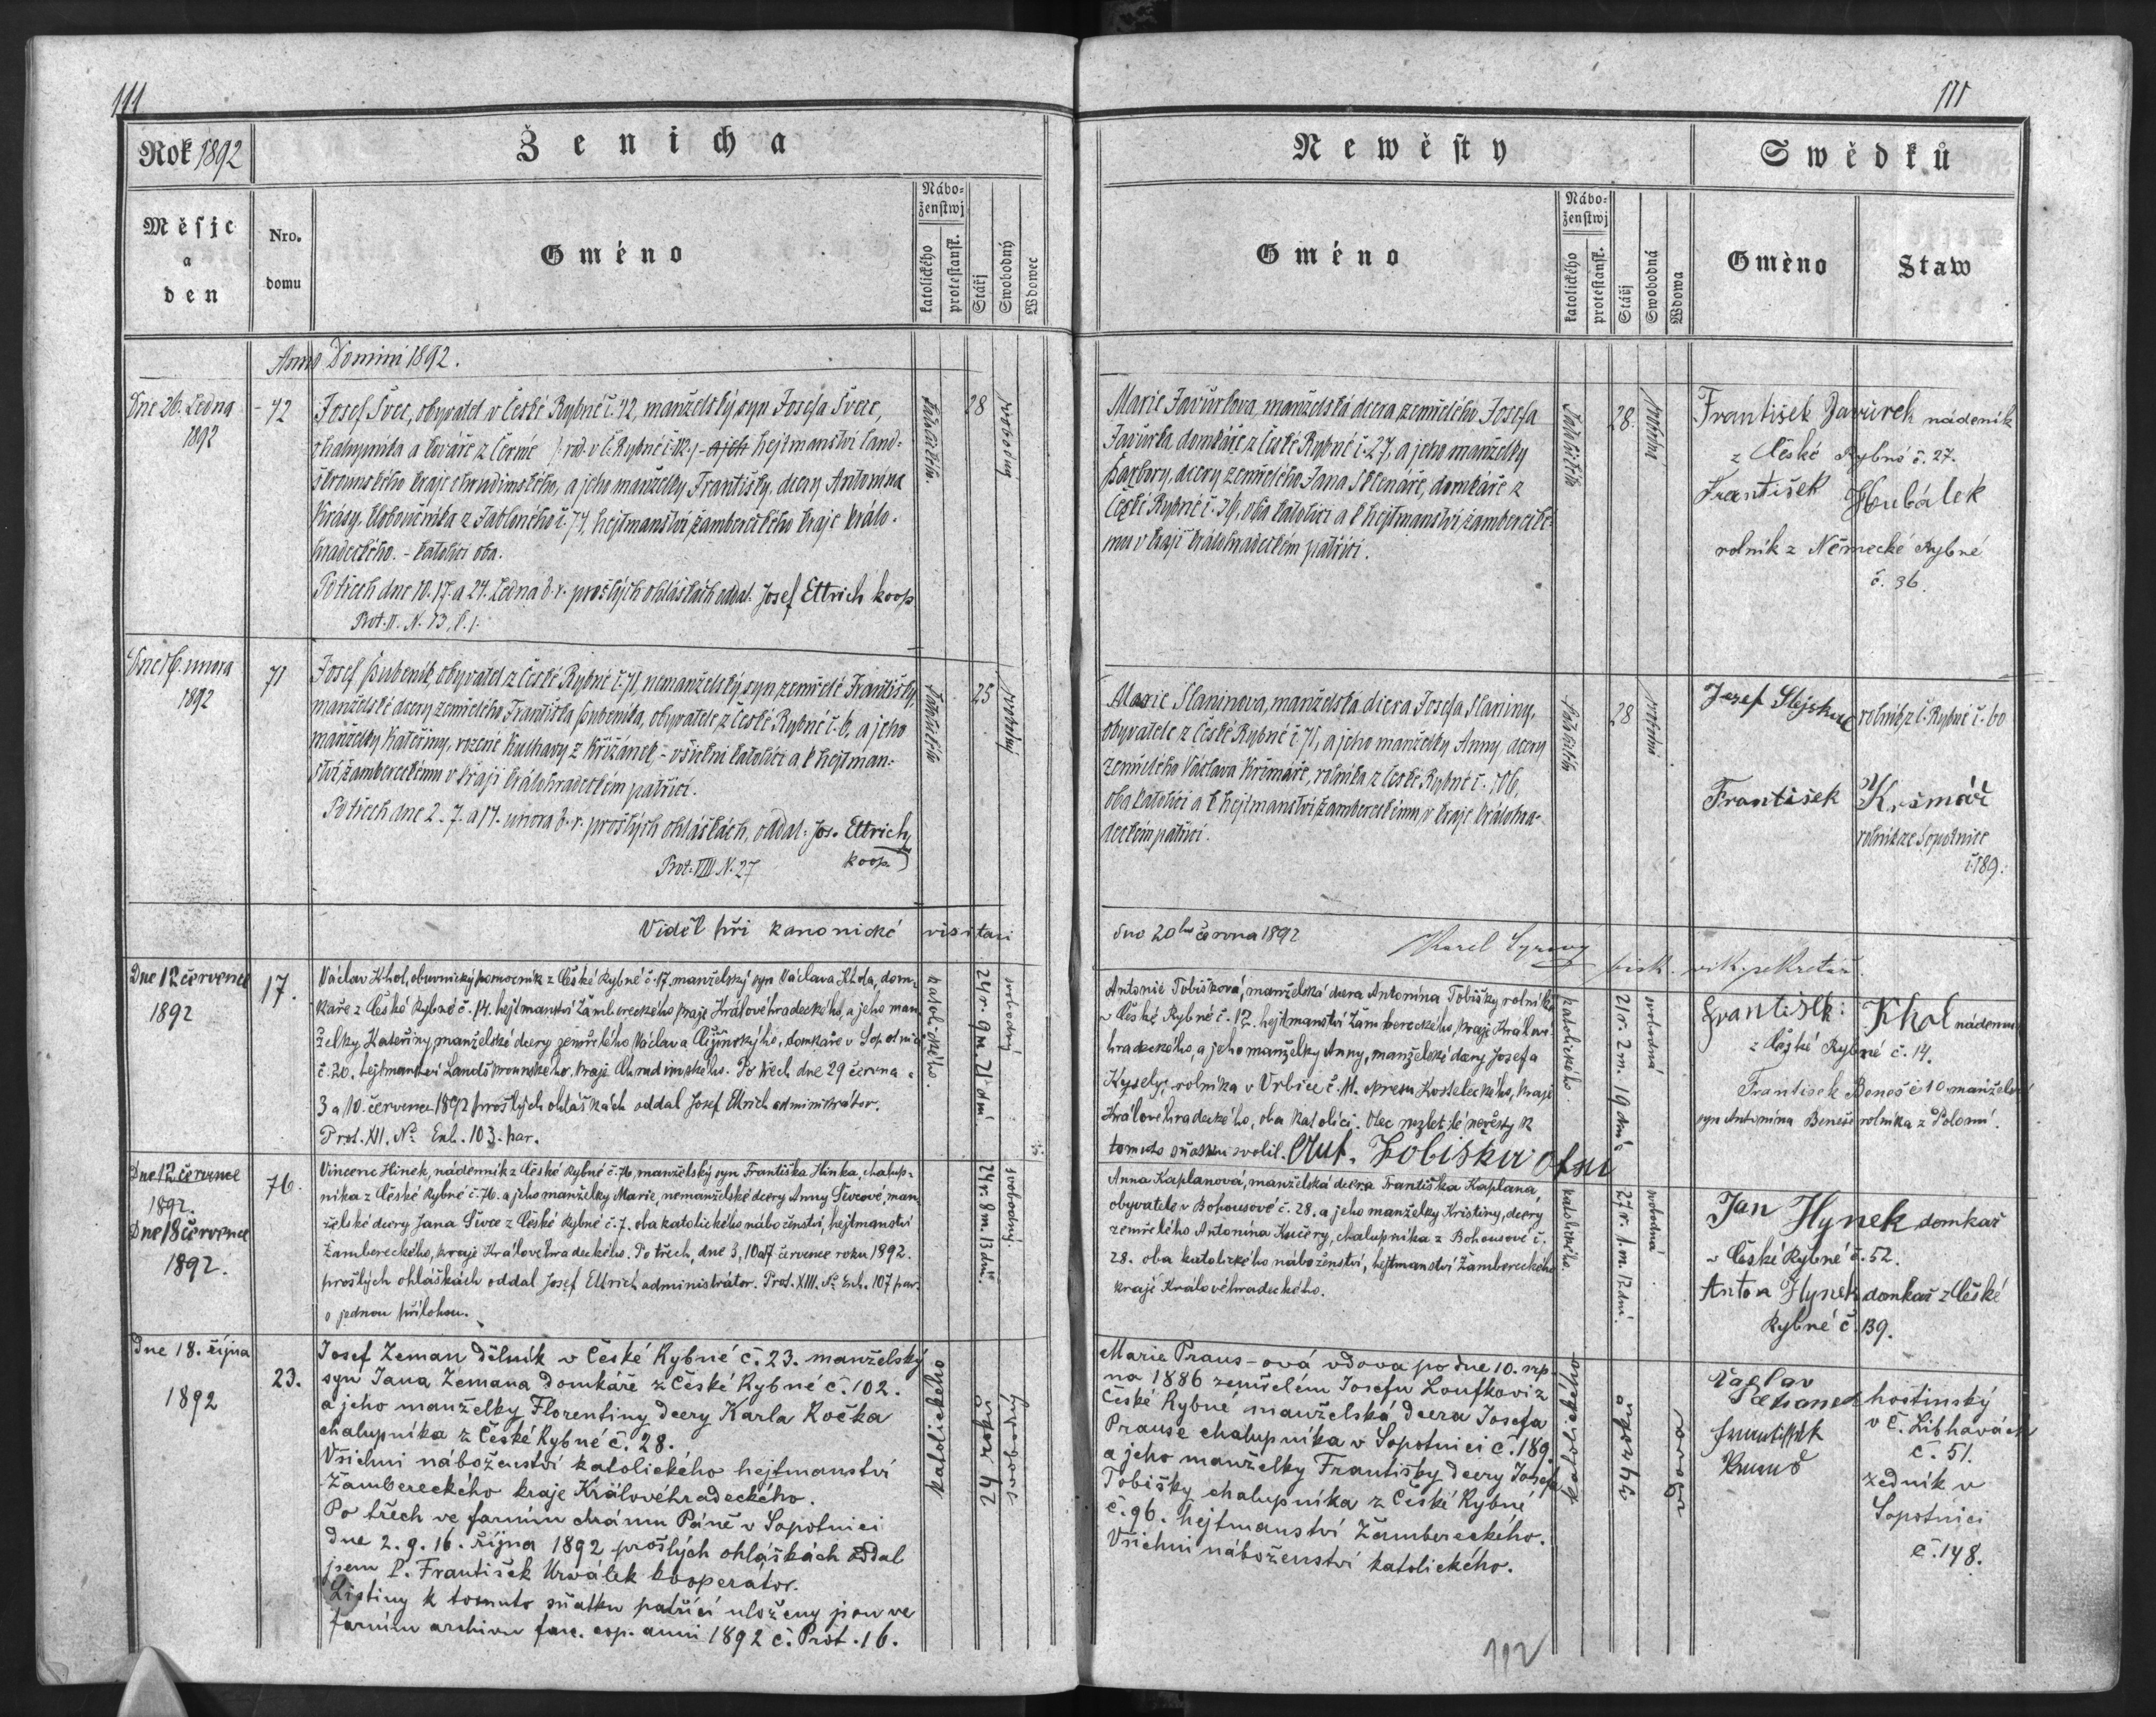 111
111
Rok 1892
Ženicha
Měsjc a den
Nro. domu
Gméno
Nábo=
ženstwj
katolického
protestansk.
Stářj
Swobodný
Wdowec
Newěsty
Gméno
Nábo=
ženstwj
katolického
protestansk.
Stářj
Swobodná
Wdowa
Swědků
Gméno
Staw
Anno Domini 1892.
Dne 26. ledna
1892
42
Josef Švec, obyvatel v České Rybné č. 42, manželský syn Josefa Švece,
chalupníka a kováře z Čermé hejtmanství land=
škrounského kraje chrudimského, a jeho manželky Františky, dcery Antonína
Krásy, z Jablonného č. 74, hejtmanství žambereckého kraje králo-
hradeckého. - katolíci oba.
Po třech dne 10. 17. a 24. ledna b. r. prošlých ohláškách oddal Josef Ettrich koop
Prot. II. N. 13,
28
svobodný
Marie Javůrkova, manželská dcera zemřelého Josefa
Javůrka, domkáře z České Rybné č. 27, a jeho manželky
Barbory, dcery zemřelého Jana Sklenáře, domkáře z
České Rybné č. 36, oba katolíci a k hejtmanství žamberecké-
mu v kraji královéhradeckém patřící.
28
svobodná
František Javůrek nádeník
z České Rybné č. 27.
František Hubálek
rolník z Německé Rybné
č. 36.
Dne 16. února
1892
71
Josef Bubeník, obyvatel z České Rybné č. 71, nemanželský syn zemřelé Františky,
manželské dcery zemřelého Františka Bubeníka, obyvatele z České Rybné č. 6, a jeho
manželky Kateřiny, rozené Kulhavy z Křižánek, - všichni katolíci a k hejtman=
ství žambereckému v kraji královéhradeckém patřící.
Po třech dne 2. 7. a 14. února b. r. prošlých ohláškách, oddal: Jos. Ettrich
koop.
Prot. VIII. N. 27
25
svobodný
Marie Slaninova, manželská dcera Josefa Slaniny,
obyvatele z České Rybné č. 71, a jeho manželky Anny, dcery
zemřelého Václava Kršmáře, rolníka z České Rybné č. 106,
oba katolíci a k hejtmanství žambereckému, v kraji králohra-
deckém patřící.
28
svobodná
Josef Stejskal rolník z Č. Rybné č. 60
František Kršmář
rolník ze Sopotnice
č. 189.
Viděl při kanonické visitaci
dne 20ho června 1892
Karel
bisk. vik. sekretář.
Dne 12 července
1892
17.
Václav Khol, obuvnický pomocník z České Rybné č. 17, manželský syn Václava Khola, dom-
káře z České Rybné č. 14. hejtmanství Žambereckého, kraje Královéhradeckého, a jeho man
želky Kateřiny, manželské dcery zemřelého Václava domkáře v Sopotnici
č. 20. hejtmanství Landškrounského, kraje Chrudimského. Po třech dne 29 června
3 a 10. července 1892 prošlých ohláškách oddal Josef Ettrich administrátor.
Prot. XII. No Exh. 103. par.
katolického.
24 r. 9 m. 21 dní.
svobodný
Antonie Tobišková, manželská dcera Antonína Tobišky, rolníka
v České Rybné č. 12. hejtmanství Žambereckého, kraje Králové
hradeckého, a jeho manželky Anny, manželské dcery Josefa
Kysely, rolníka v Vrbici č. 11. okresu Kosteleckého, kraje
Královéhradeckého, oba katolíci. Otec nezletilé nevěsty k
tomuto sňatku svolil. Ant. Tobiška otec
katolického
21 r. 2 m. 19 dní
svobodná
František Khol nádeník
z České Rybné č. 14.
František Beneš č. 10 manželský
syn Antonína Beneše rolníka z Polomi.
Dne 12 července
1892.
Dne 18 července
1892.
76.
Vincenc Hinek, nádenník z České Rybné č. 76, manželský syn Františka Hinka, chalup=
níka z České Rybné č. 76. a jeho manželky Marie, nemanželské dcery Anny Švecové, man
želské dcery Jana Švece z České Rybné č. 7. oba katolického náboženství, hejtmanství
Žambereckého, kraje Královéhradeckého. Po třech, dne 3, 10 a 17 července roku 1892.
prošlých ohláškách oddal Josef Ettrich administrátor. Prot. XIII. No Exh. 107 par.
s jednou přílohou.
24 r. 8 m. 13 dní.
svobodný.
Anna Kaplanová, manželská dcera Františka Kaplana,
obyvatele v Bohousové č. 28. a jeho manželky Kristiny, dcery
zemřelého Antonína Kučery, chalupníka z Bohousové č.
28. oba katolického náboženství, hejtmanství Žambereckého
kraje Královéhradeckého.
katolického.
27 r. 1. m. 12 dní.
svobodná
Jan Hynek domkař
v České Rybné č. 52.
Anton Hynek domkař z České
Rybné č. 139.
Dne 18. října
1892
23.
Josef Zeman dělník v České Rybné č. 23. manželský
syn Jana Zemana domkáře z České Rybné č. 102.
a jeho manželky Florentiny dcery Karla Kočka
chalupníka z České Rybné č. 28.
Všichni náboženství katolického hejtmanství
Žambereckého kraje Královéhradeckého.
Po třech ve farním chrámu Páně v Sopotnici
dne 2. 9. 16. října 1892 prošlých ohláškách oddal
jsem P. František Urválek kooperator.
Listiny k tomuto sňatku patřící uloženy jsou ve
farním archivu fasc. cop. anni 1892 č. Prot. 16.
katolického
24 roků
svobodný
Marie Praus-ová vdova po dne 10. srp
na 1886 zemřelém Josefu Loufkovi z
České Rybné manželská dcera Josefa
Prause chalupníka v Sopotnici č. 189.
a jeho manželky Františky dcery Josefa
Tobišky chalupníka z České Rybné
č. 96. hejtmanství Žambereckého.
Všichni náboženství katolického.
katolického
vdova
Václav hostinský
v Č. Libchavách
č. 51.
František
zedník v
Sopotnici
č. 148.
112